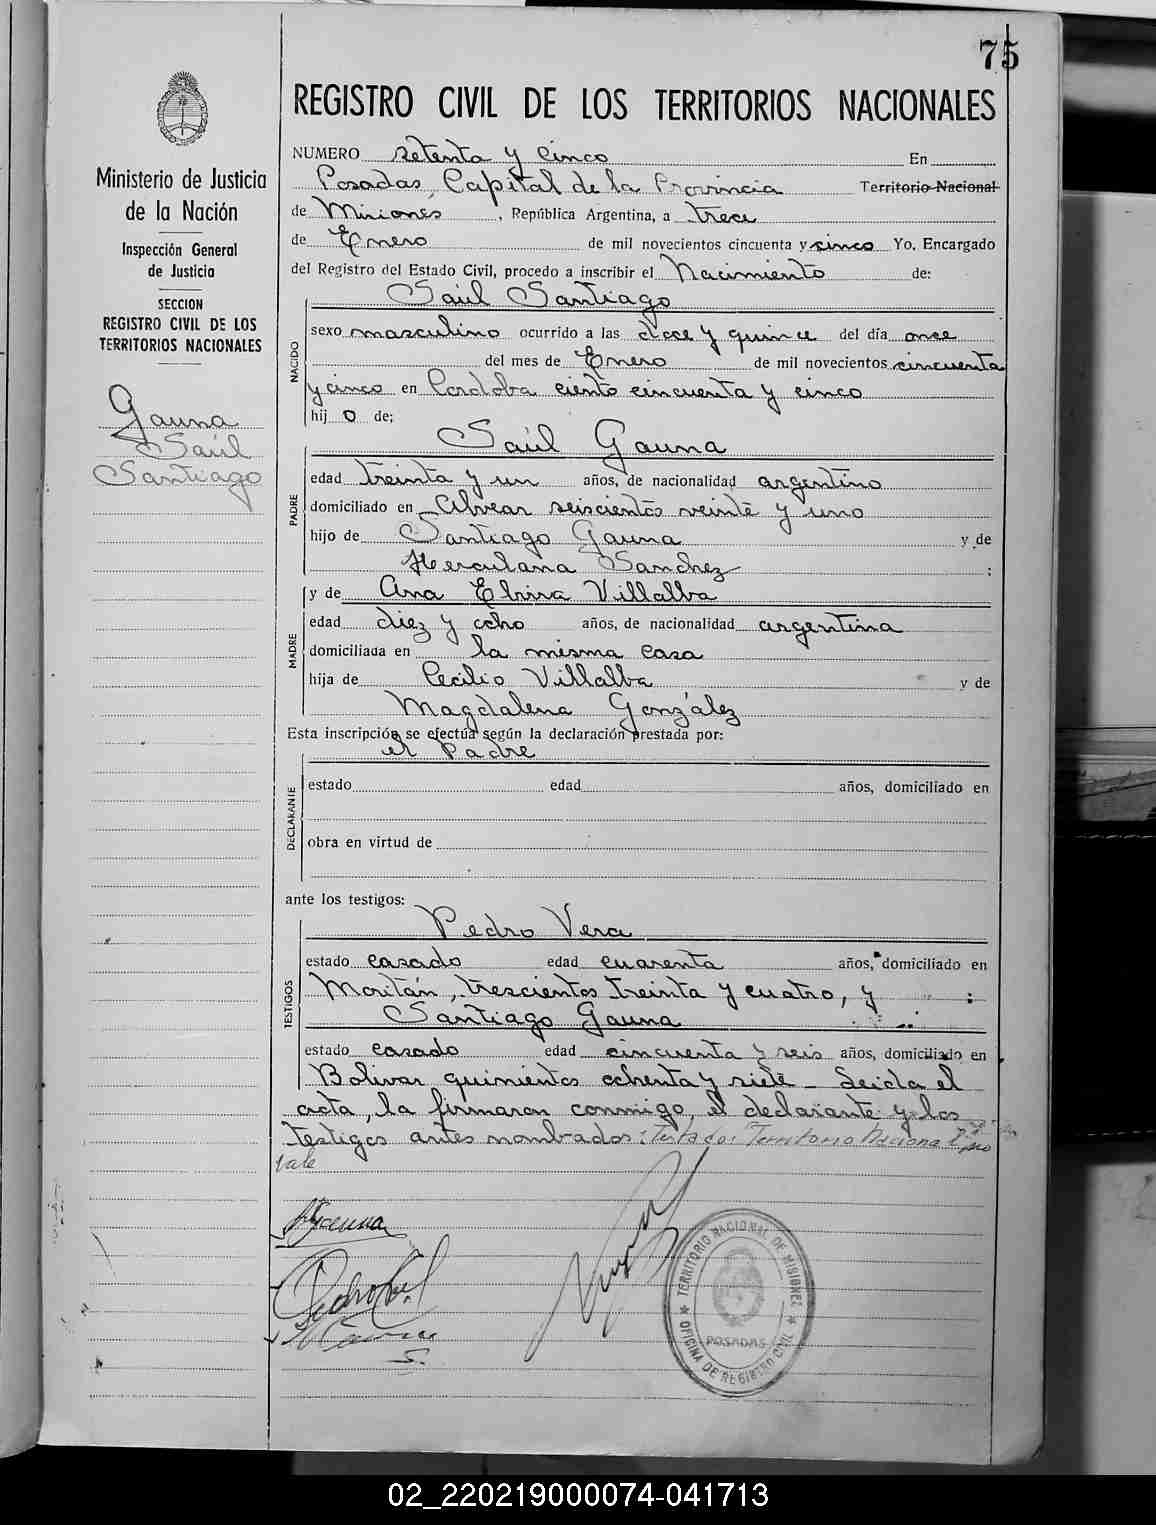 75
REGISTRO CIVIL DE LOS TERRITORIOS NACIONALES
Ministerio de Justicia
de la Nación
Inspección General
de Justicia
SECCION
REGISTRO CIVIL DE LOS
TERRITORIOS NACIONALES
Gauna
Saúl
Santiago
NUMERO setenta y cinco En
Posadas, Capital de la Provincia Territorio Nacional
de Misiones, República Argentina, a trece
de Enero de mil novecientos cincuenta y cinco Yo, Encargado
del Registro del Estado Civil, procedo a inscribir el Nacimiento de:
Saúl Santiago
NACIDO
sexo masculino ocurrido a las doce y quince del día once
del mes de Enero de mil novecientos cincuenta
y cinco en Cordoba ciento cincuenta y cinco
hij o de;
Saúl Gauna
PADRE
edad treinta y un años, de nacionalidad argentino
domiciliado en Alvear seiscientos veinte y uno
hijo de Santiago Gauna y de
Herculana Sanchez ;
y de Ana Elvira Villalba
MADRE
edad diez y ocho años, de nacionalidad argentina
domiciliada en la misma casa
hija de Cecilio Villalba y de
Magdalena González
Esta inscripción se efectúa según la declaración prestada por:
el Padre
DECLARANTE
estado edad años, domiciliado en
obra en virtud de
ante los testigos:
Pedro Vera
TESTIGOS
estado casado edad cuarenta años, domiciliado en
Moritán, trescientos treinta y cuatro, y :
Santiago Gauna
estado casado edad cincuenta y seis años, domiciliado en
Bolivar quinientos ochenta y siete - Leida el
acta, la firmaron conmigo, el declarante y los
testigos antes nombrados: Testado: Territorio Nacional no
vale
SGauna
TERRITORIO NACIONAL DE MISIONES
POSADAS
OFICINA DE REGISTRO CIVIL
02_220219000074-041713